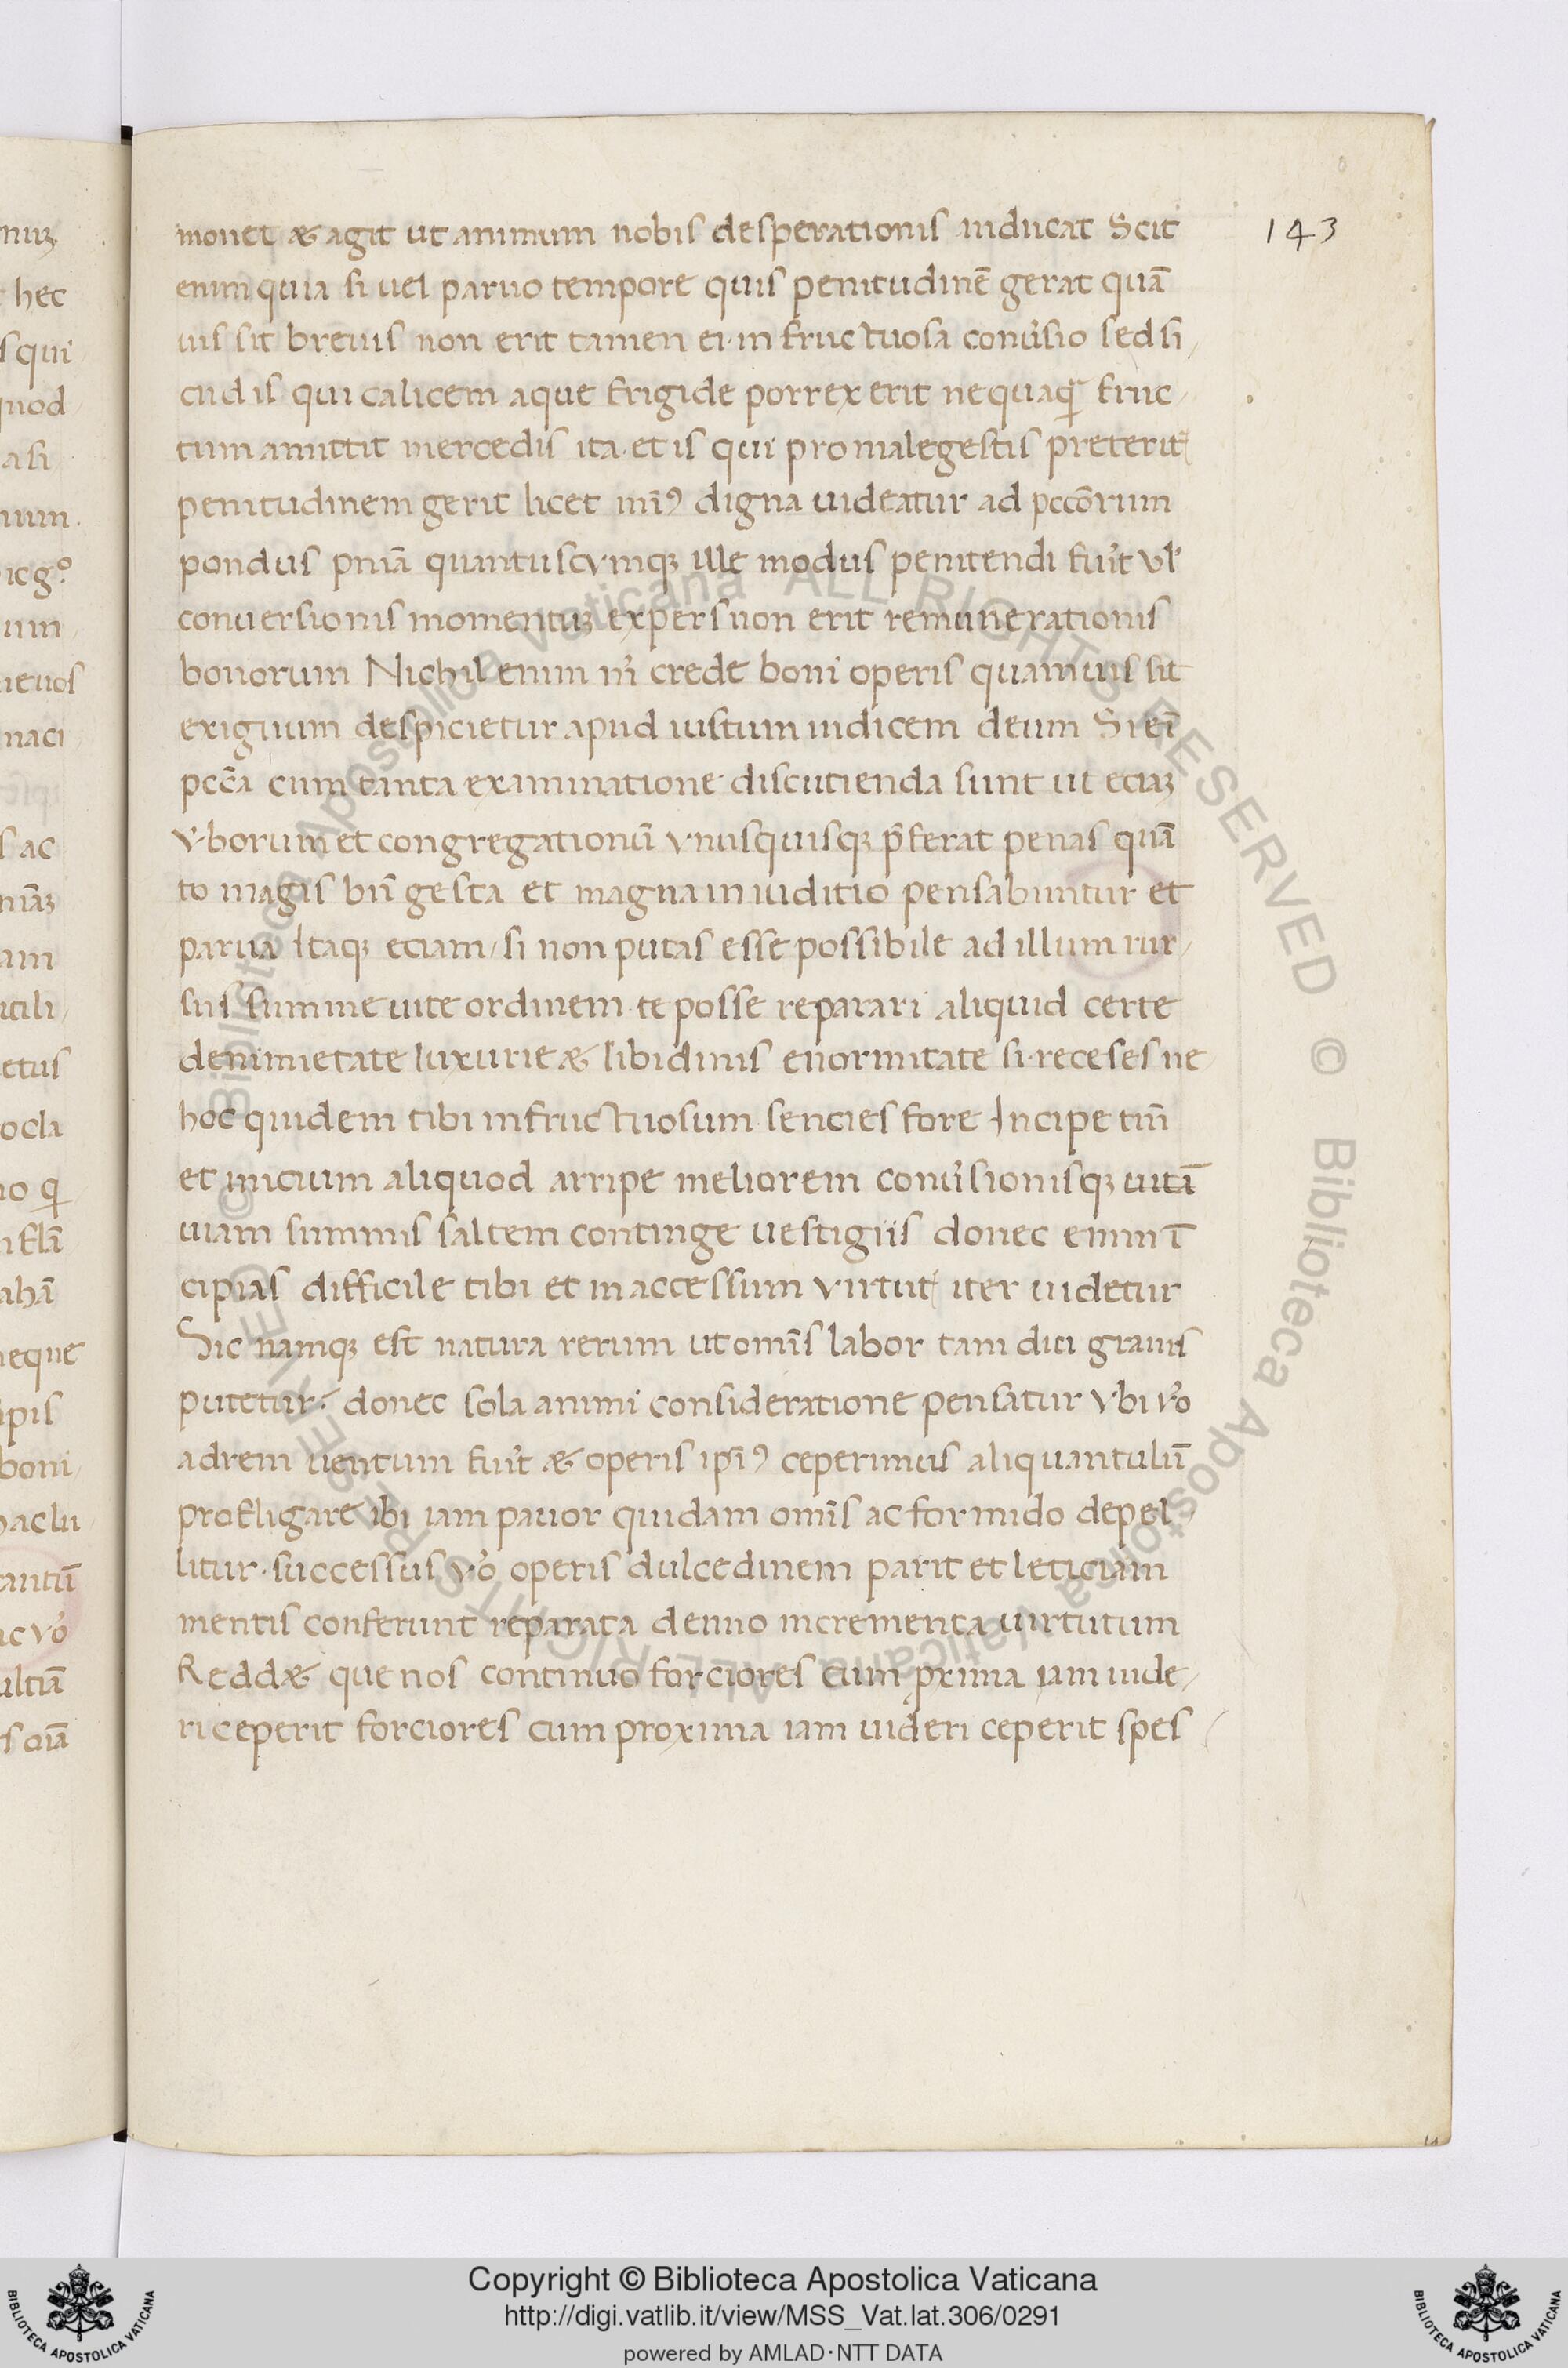 143
monet & agit ut animum nobis desperationis inducat Scit
enim quia si uel paruo tempore quis penitudinē gerat quā
uis sit breuis non erit tamen ei in fructuosa conu̓sio sed si
cud is qui calicem aque frigide porrexerit nequaq̄ fruc
tum amittit mercedis ita et is qui pro male gestis preterit
penitudinem gerit licet mī9 digna uideatur ad pccōrum
pondus pniā quantuscvmqꝫ ille modus penitendi fuit̓ vl̓
conuersionis momentuꝫ expers non erit remunerationis
bonorum Nichil enim m̓ crede boni operis quamuis sit
exiguum despicietur apud iustum iudicem deum Si eī
pccā cum tanta examinatione discutienda sunt ut eciaꝫ
v̓borum et congregationū vnusquisqꝫ p̄ferat penas quā
to magis bn̄ gesta et magna in iuditio pensabuntur et
parua Itaqꝫ eciam si non putas esse possibile ad illum rur
sus summe uite ordinem te posse reparari aliquid certe
de nimietate luxurie & libidinis enormitate si receses ne
hoc quidem tibi infructuosum sencies fore Incipe tm̄
et inicium aliquod arripe meliorem conu̓sionisqꝫ uitā
uiam summis saltem continge uestigiis donec enim ī
cipias difficile tibi et inaccessum virtut iter uidetur
Sic namqꝫ est natura rerum ut omīs labor tam diu grauis
putetur donec sola animi consideratione pensatur vbi vo̓
ad rem uentum fuit̓ & operis ipī9 ceperimus aliquantulū
profligare ibi iam pauor quidam omīs ac formido depel
litur successus vo̓ operis dulcedinem parit et leticiam
mentis conferunt reparata denuo incrementa uirtutum
Redd& que nos continuo forciores cum prima iam uide
ri ceperit forciores cum proxima iam uideri ceperit spes
hec
qui
quod
ac
boni
Copyright © Biblioteca Apostolica Vaticana
http://digi.vatlib.it/view/MSS_Vat.lat.306/0291
powered by AMLAD·NTT DATA
BIBLIOTECA APOSTOLICA VATICANA
BIBLIOTECA APOSTOLICA VATICANA